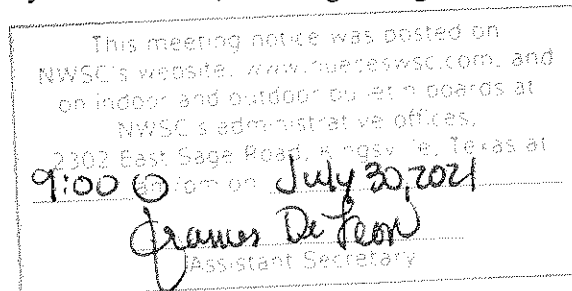 This meeting notice was posted on
NWSC's website, www.nueceswsc.com, and
on indoor and outdoor bulletin boards at
NWSC's administrative offices,
2302 East Sage Road, Kingsville, Texas at
9:00 am/pm on July 30, 2021
Frances De Leon
Assistant Secretary